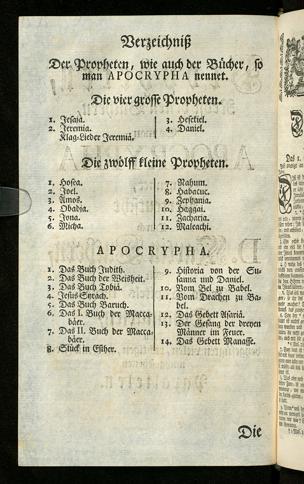 Verzeichniß
Der Propheten, wie auch der Bücher, so
man APOCRYPHA nennet.
Die vier grosse Propheten.
1. Jesaia.
2. Jeremia.
Klag-Lieder Jeremiä.
3. Hesekiel.
4. Daniel.
Die zwölff kleine Propheten.
1. Hosea.
2. Joel.
3. Amos.
4. Obadja.
5. Jona.
6. Micha.
7. Nahum.
8. Habacuc.
9. Zephania.
10. Haggai.
11. Zacharja.
12. Maleachi.
APOCRYPHA.
1. Das Buch Judith.
2. Das Buch der Weisheit.
3. Das Buch Tobiä.
4. Jesus Syrach.
5. Das Buch Baruch.
6. Das I. Buch der Macca-
bäer.
7. Das II. Buch der Macca-
bäer.
8. Stück in Esther.
9. Historia von der Su-
sanna und Daniel.
10. Vom Bel zu Babel.
11. Vom Drachen zu Ba-
bel.
12. Das Gebett Asariä.
13. Der Gesang der dreyen
Männer im Feuer.
14. Das Gebett Manasse.
Die